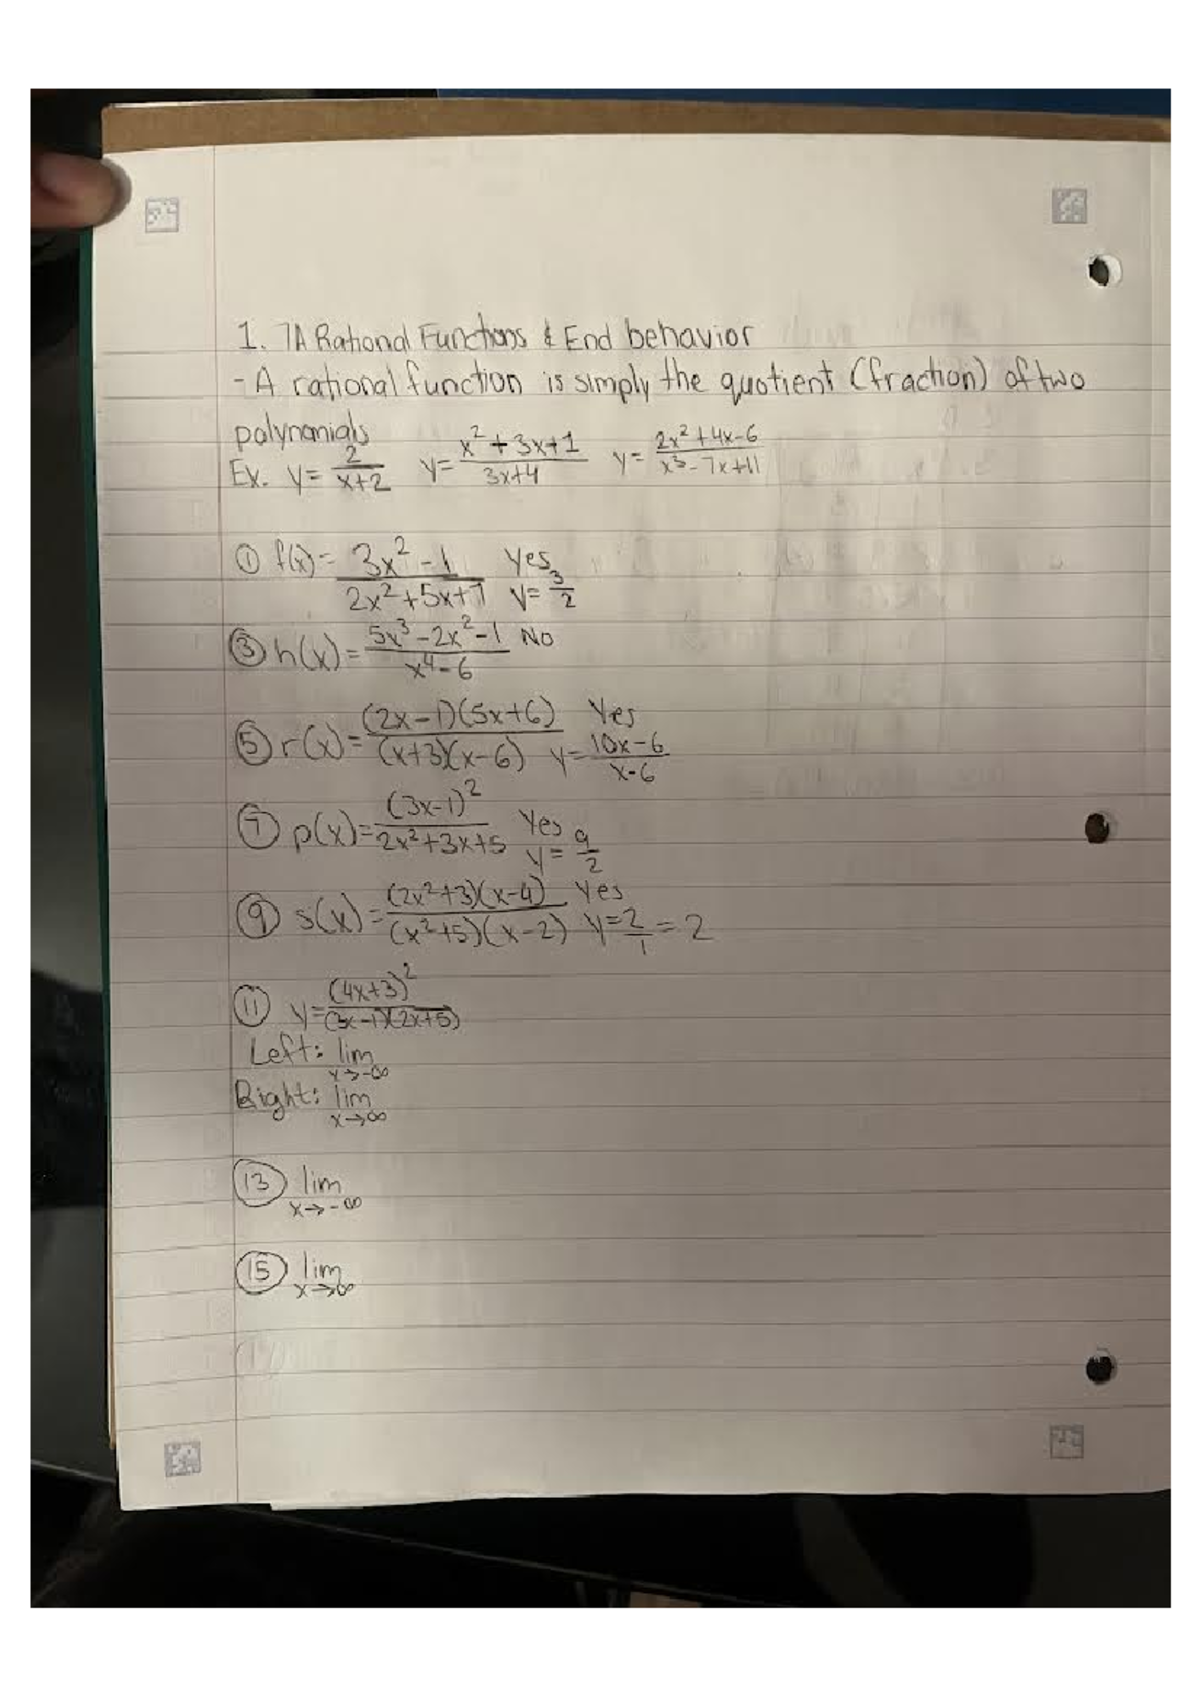 1. 7A Rational Functions & End behavior
- A rational function is simply the quotient (fraction) of two
polynomials
Ex. y = 2/(x+2) y = (x²+3x+1)/(3x+4) y = (2x²+4x-6)/(x³-7x+11)
① f(x) = (3x²-1)/(2x²+5x+7) Yes y = 3/2
③ h(x) = (5x³-2x²-1)/(x⁴-6) No
⑤ r(x) = (2x-1)(5x+6)/(x+3)(x-6) Yes y = (10x-6)/(x-6)
⑦ p(x) = (3x-1)²/(2x²+3x+5) Yes y = 9/2
⑨ s(x) = (2x²+3)(x-4)/(x²+5)(x-2) Yes y = 2/1 = 2
⑪ y = (4x+3)²/(3x-1)(2x+5)
Left: lim x→-∞
Right: lim x→∞
⑬ lim x→-∞
⑮ lim x→∞